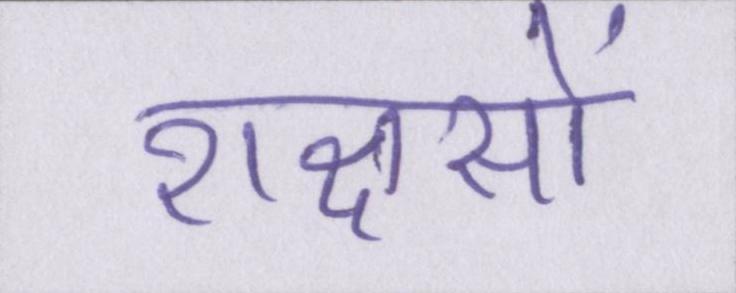 राक्षसों